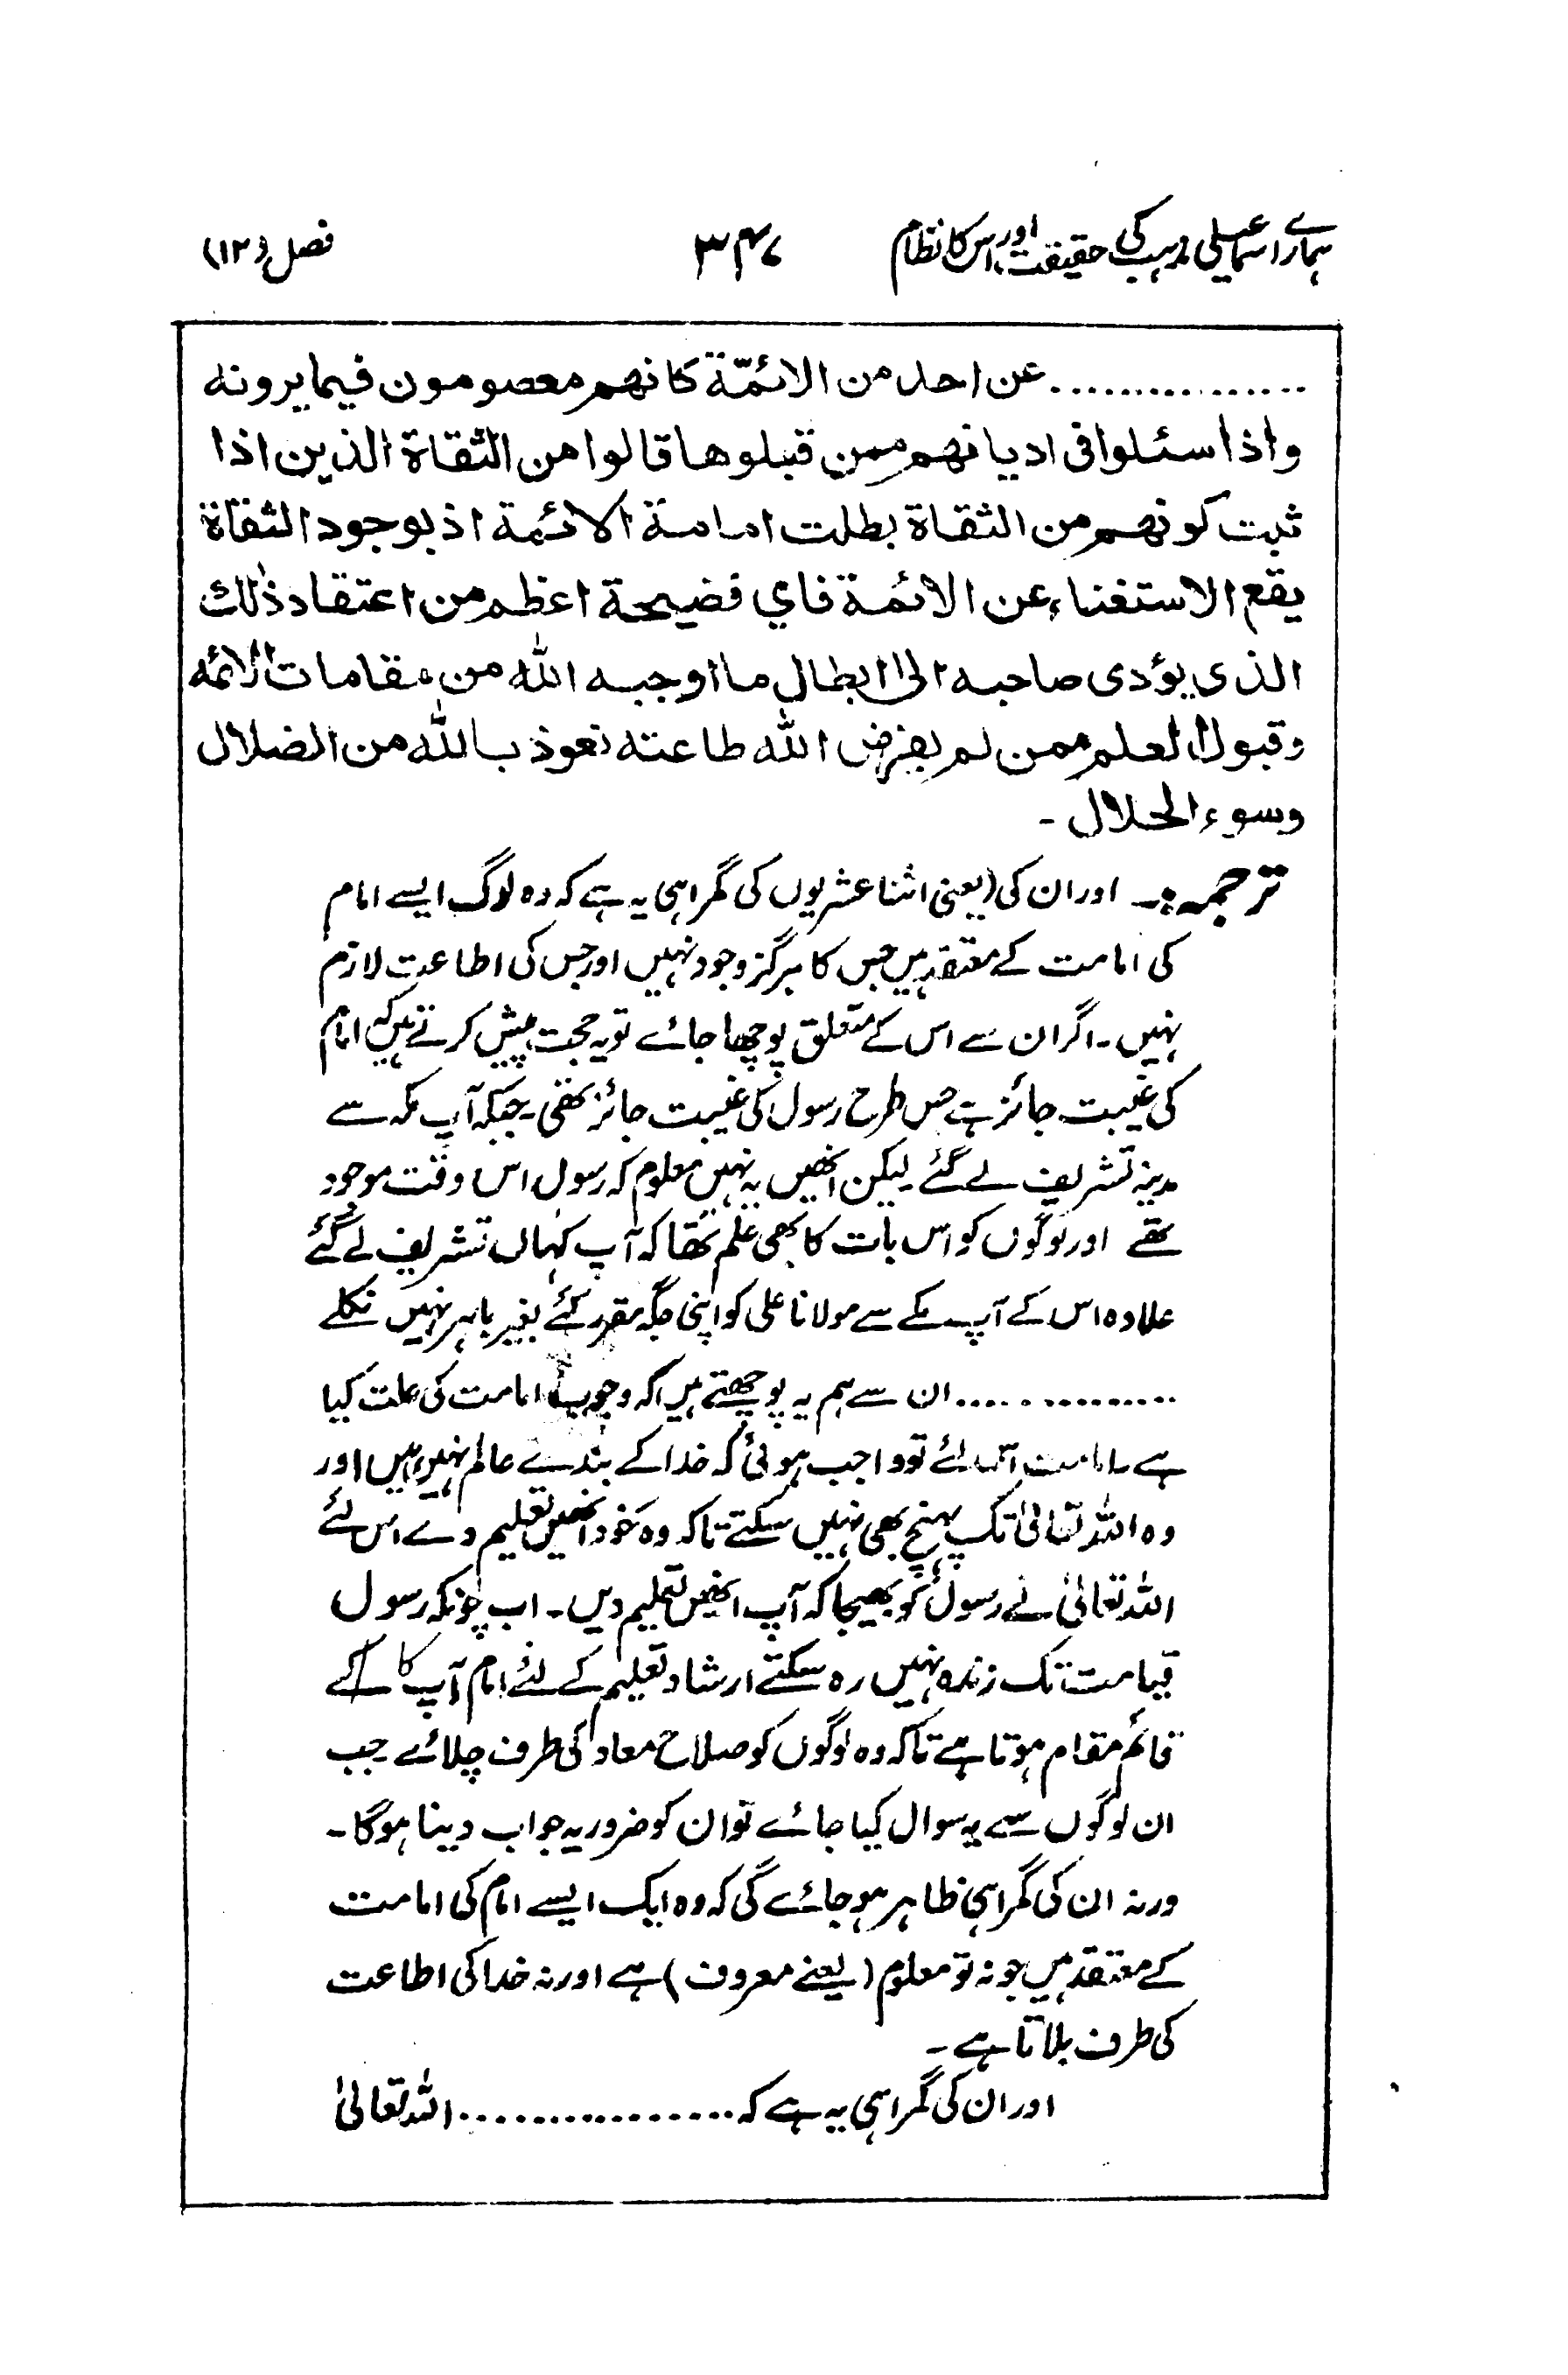 ہمارے اسماعیلی مذہب کی حقیقت اور اس کا نظام ۳۴۷ فصل (۱۲)
................عن احد من الائمّة كانهم معصومون فيما يرونه
واذا سئلوا فى اديانهم ممن قبلوها قالوا من الثقاة الذين اذا
ثبت كونهم من الثقاة بطلت امامة الائمة اذ بوجود الثقاة
يقع الاستغناء عن الائمة فاي فضيحة اعظم من اعتقاد ذٰلك
الذى يؤدى صاحبه الى ابطال ما اوجبه الله من مقامات الائمه
وقبول العلم ممن لم يفرض الله طاعته نعوذ بالله من الضلال
وسوء الحلال ۔
ترجمہ:۔ اور ان کی (یعنی اثنا عشریوں کی گمراہی یہ ہے کہ وہ لوگ ایسے امام
کی امامت کے معتقد ہیں جس کا ہرگز وجود نہیں اور جس کی اطاعت لازم
نہیں ۔ اگر ان سے اس کے متعلق پوچھا جائے تو یہ حجت پیش کرتے ہیں کہ امام
کی غیبت جائز ہے جس طرح رسول کی غیبت جائز تھی جبکہ آپ مکہ سے
مدینہ تشریف لے گئے لیکن انھیں یہ نہیں معلوم کہ رسول اس وقت موجود
تھے اور لوگوں کو اس بات کا بھی علم تھا کہ آپ کہاں تشریف لے گئے
علاوہ اس کے آپ مکے سے مولانا علی کو اپنی جگہ مقرر کئے بغیر باہر نہیں نکلے
...............ان سے ہم یہ پوچھتے ہیں کہ وجوب امامت کی علت کیا
ہے ۔ امامت اس لئے تو واجب ہوئی کہ خدا کے بندے عالم نہیں ہیں اور
وہ اللہ تعالیٰ تک پہنچ بھی نہیں سکتے تاکہ وہ خود انھیں تعلیم دے اس لئے
اللہ تعالیٰ نے رسول کو بھیجا کہ آپ انھیں تعلیم دیں ۔ اب چونکہ رسول
قیامت تک زندہ نہیں رہ سکتے ارشاد تعلیم کے لئے امام آپ کا کے
قائم مقام ہوتا ہے تاکہ وہ لوگوں کو صلاح معاد کی طرف چلائے جب
ان لوگوں سے یہ سوال کیا جائے تو ان کو ضرور یہ جواب دینا ہوگا ۔
ورنہ ان کی گمراہی ظاہر ہو جائے گی کہ وہ ایک ایسے امام کی امامت
کے معتقد ہیں جو نہ تو معلوم (یعنے معروف) ہے اور نہ خدا کی اطاعت
کی طرف بلاتا ہے ۔
اور ان کی گمراہی یہ ہے کہ ................. اللہ تعالیٰ